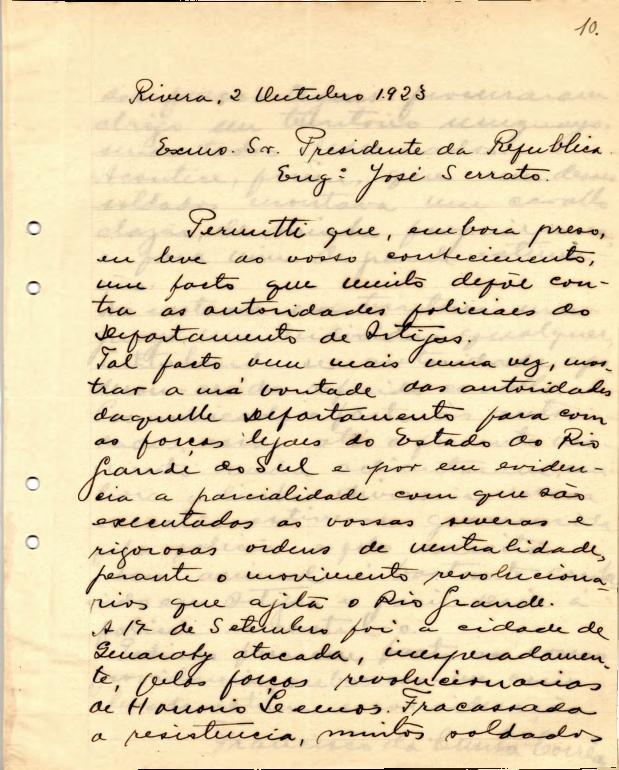 10.
Rivera, 2 Outubro 1923
Exmo. Sr. Presidente da Republica.
Eng.º José Serrato.
Permitti que, embora preso,
eu leve ao vosso conhecimento,
um facto que muito depõe con-
tra as autoridades policiaes do
Departamento de Artigas.
Tal facto vem mais uma vez, mos-
trar a má vontade das autoridades
daquelle Departamento para com
as forças legaes do Estado do Rio
Grande do Sul e por em eviden-
cia a parcialidade com que são
executadas as vossas severas e
rigorosas ordens de neutralidade,
perante o movimento revoluciona-
rios que agita o Rio Grande.
A 17 de Setembro foi a cidade de
atacada, inesperadamen-
te, pelas forças revolucionarias
de Honorio Lemos. Fracassada
a resistencia, muitos soldados